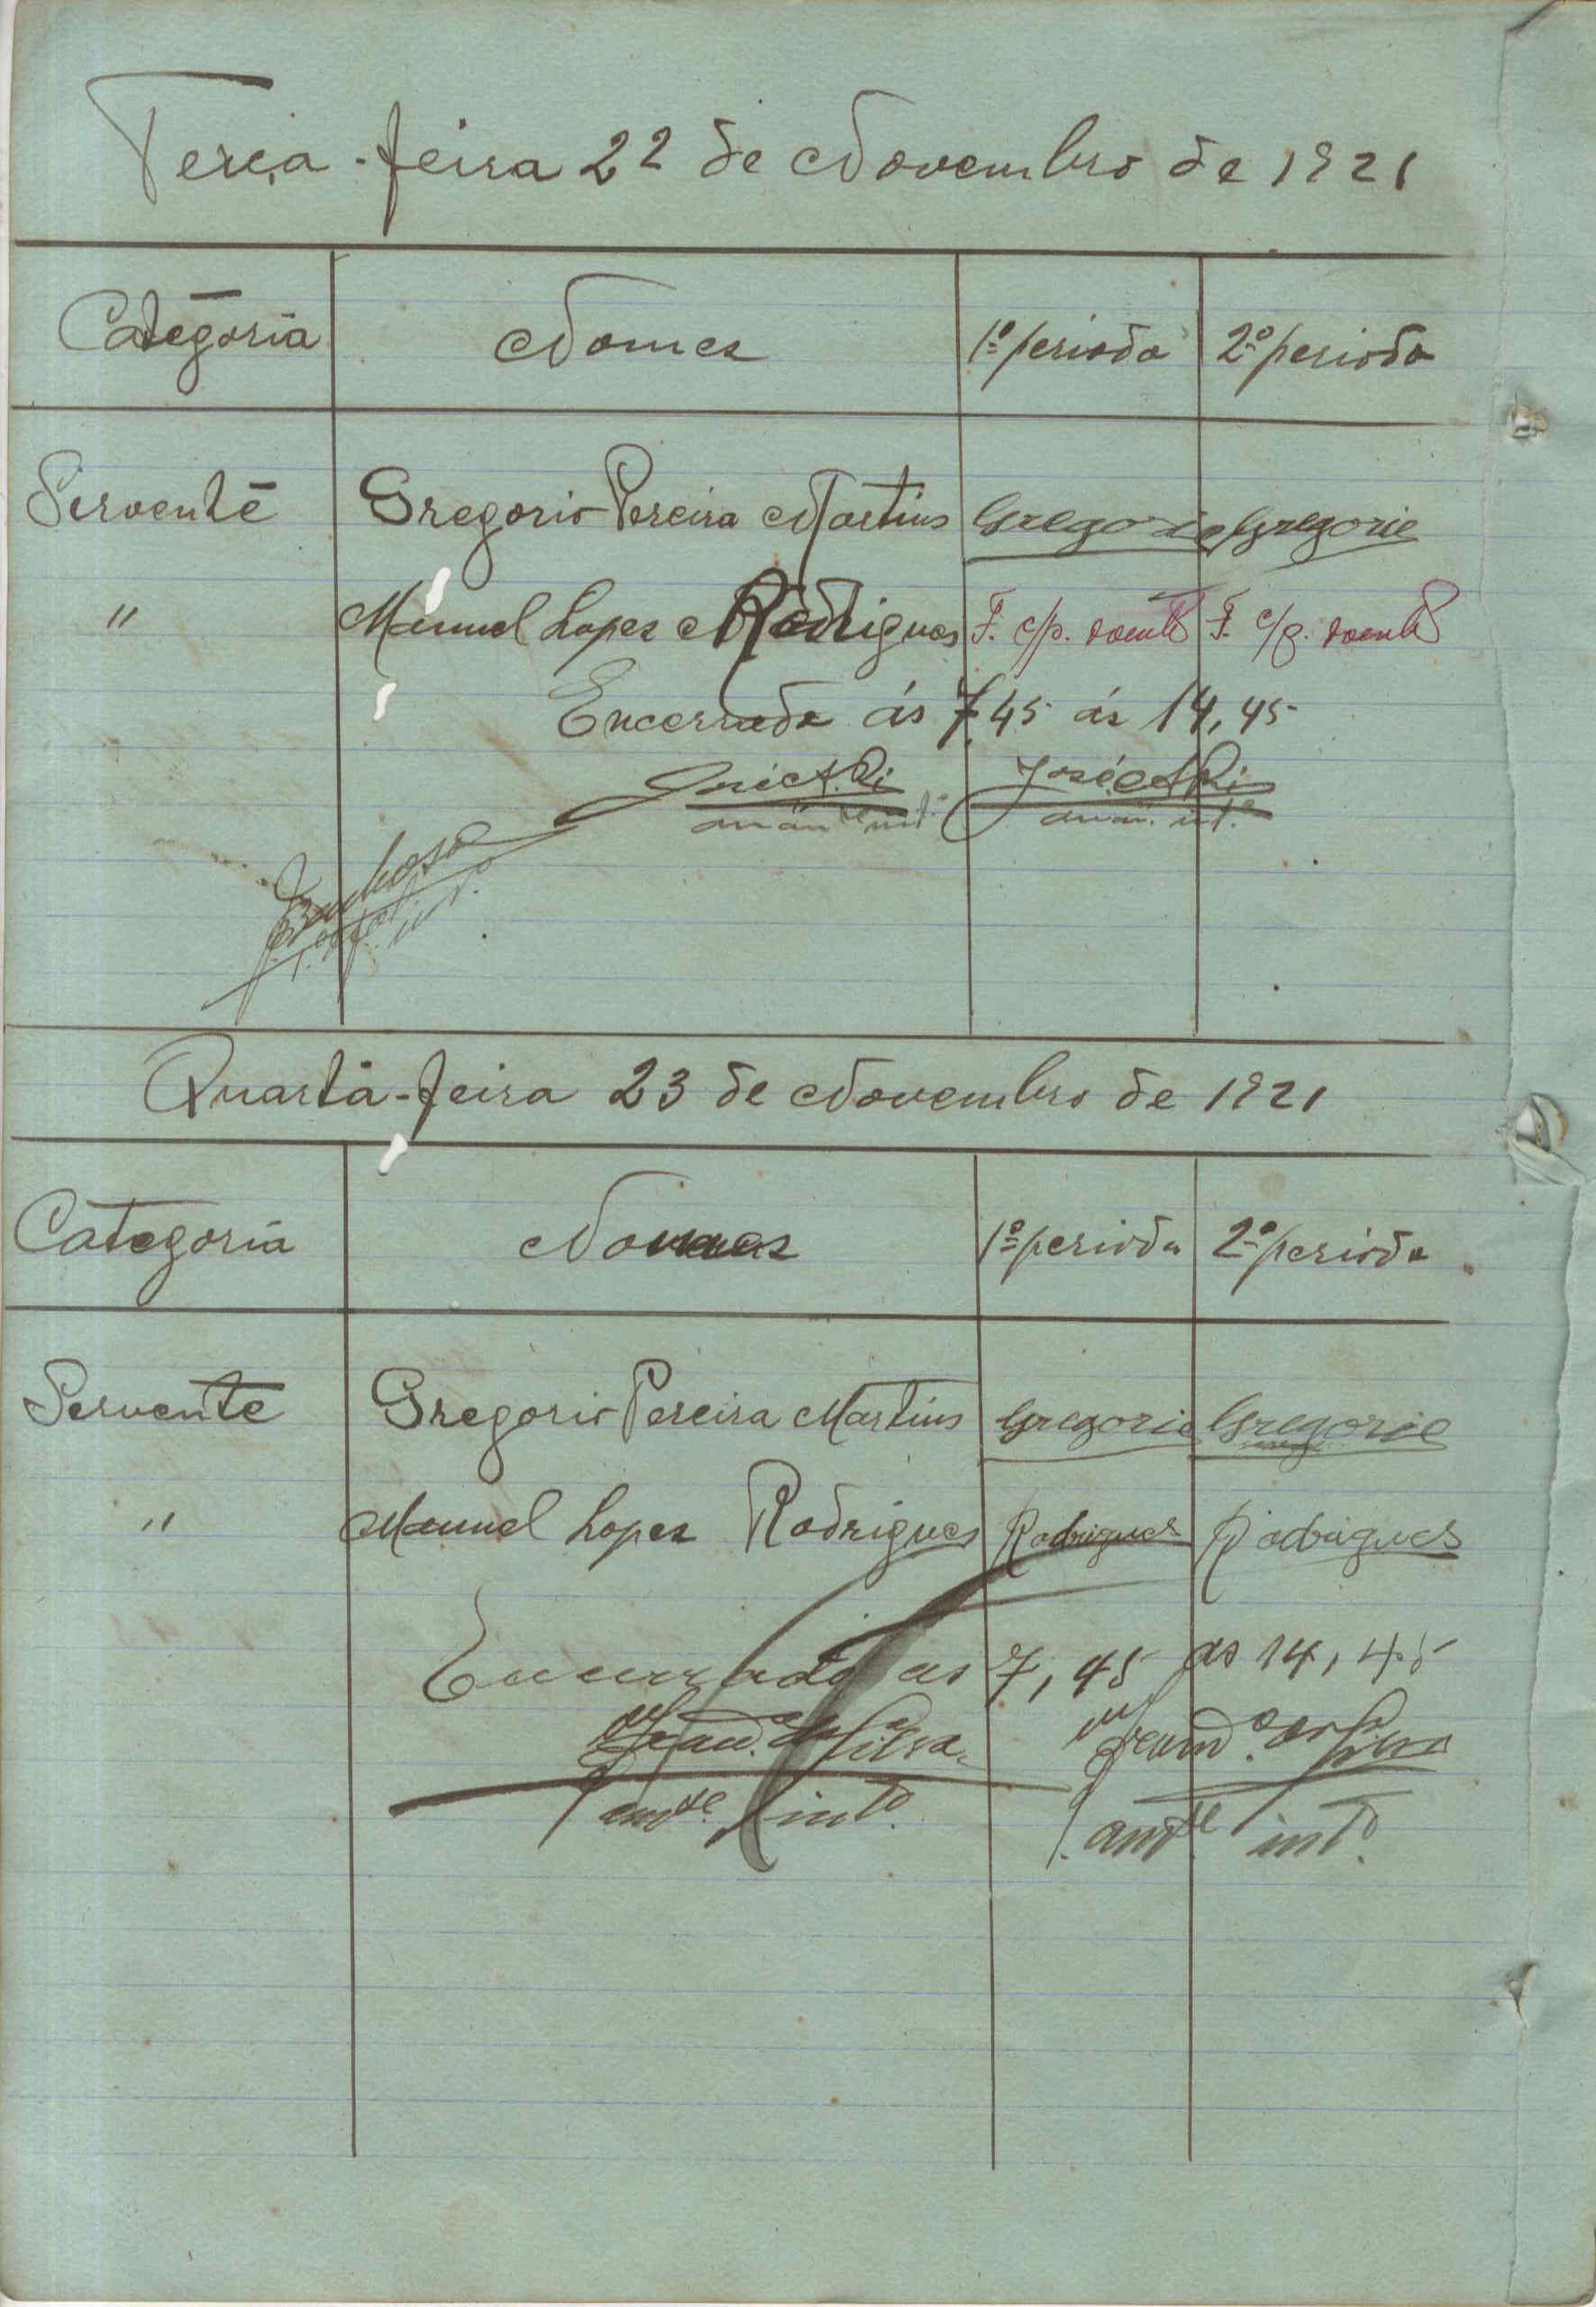 Terça-feira 22 de Novembro de 1921
Categoria Nomes 1º periodo 2º periodo
Servente Gregorio Pereira Martins Gregorio Gregorio
" Manuel Lopes Rodrigues F. c/p. doente F. c/p. doente
Encerrado ás 7,45 ás 14,45
José A. José A.
int.º int.º
Quarta-feira 23 de Novembro de 1921
Categoria Nomes 1º periodo 2º periodo
Servente Gregorio Pereira Martins Gregorio Gregorio
" Manuel Lopes Rodrigues Rodrigues Rodrigues
Encerrado as 7,45 as 14,45
Silva Silva
int.º int.º